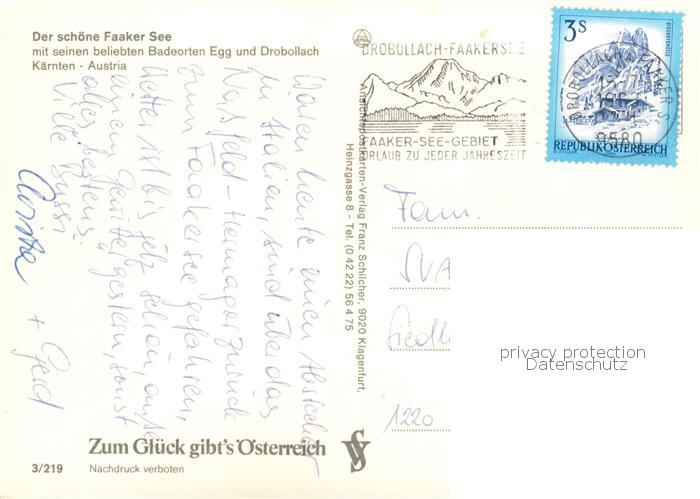 Der schöne Faaker See
mit seinen beliebten Badeorten Egg und Drobollach
Kärnten - Austria
DROBOLLACH-FAAKERSEE
FAAKER-SEE-GEBIET
URLAUB ZU JEDER JAHRESZEIT
3S
REPUBLIK ÖSTERREICH
DROBOLLACH a. FAAKER S.
9580
Waren heute einen Abstecher
in Italien, sind über das
Naßfeld - Hermagor zurück
zum Faakersee gefahren,
Wetter ist bis jetzt schön, außer
einem Gewitter gestern, sonst
alles bestens.
Viele Bussi
Christa + Gerd
Ansichtspostkarten-Verlag Franz Schilcher, 9020 Klagenfurt,
Heinzgasse 8 - Tel. (0 42 22) 56 4 75
Fam.
Siedl
1220
privacy protection
Datenschutz
Zum Glück gibt's Österreich
3/219 Nachdruck verboten